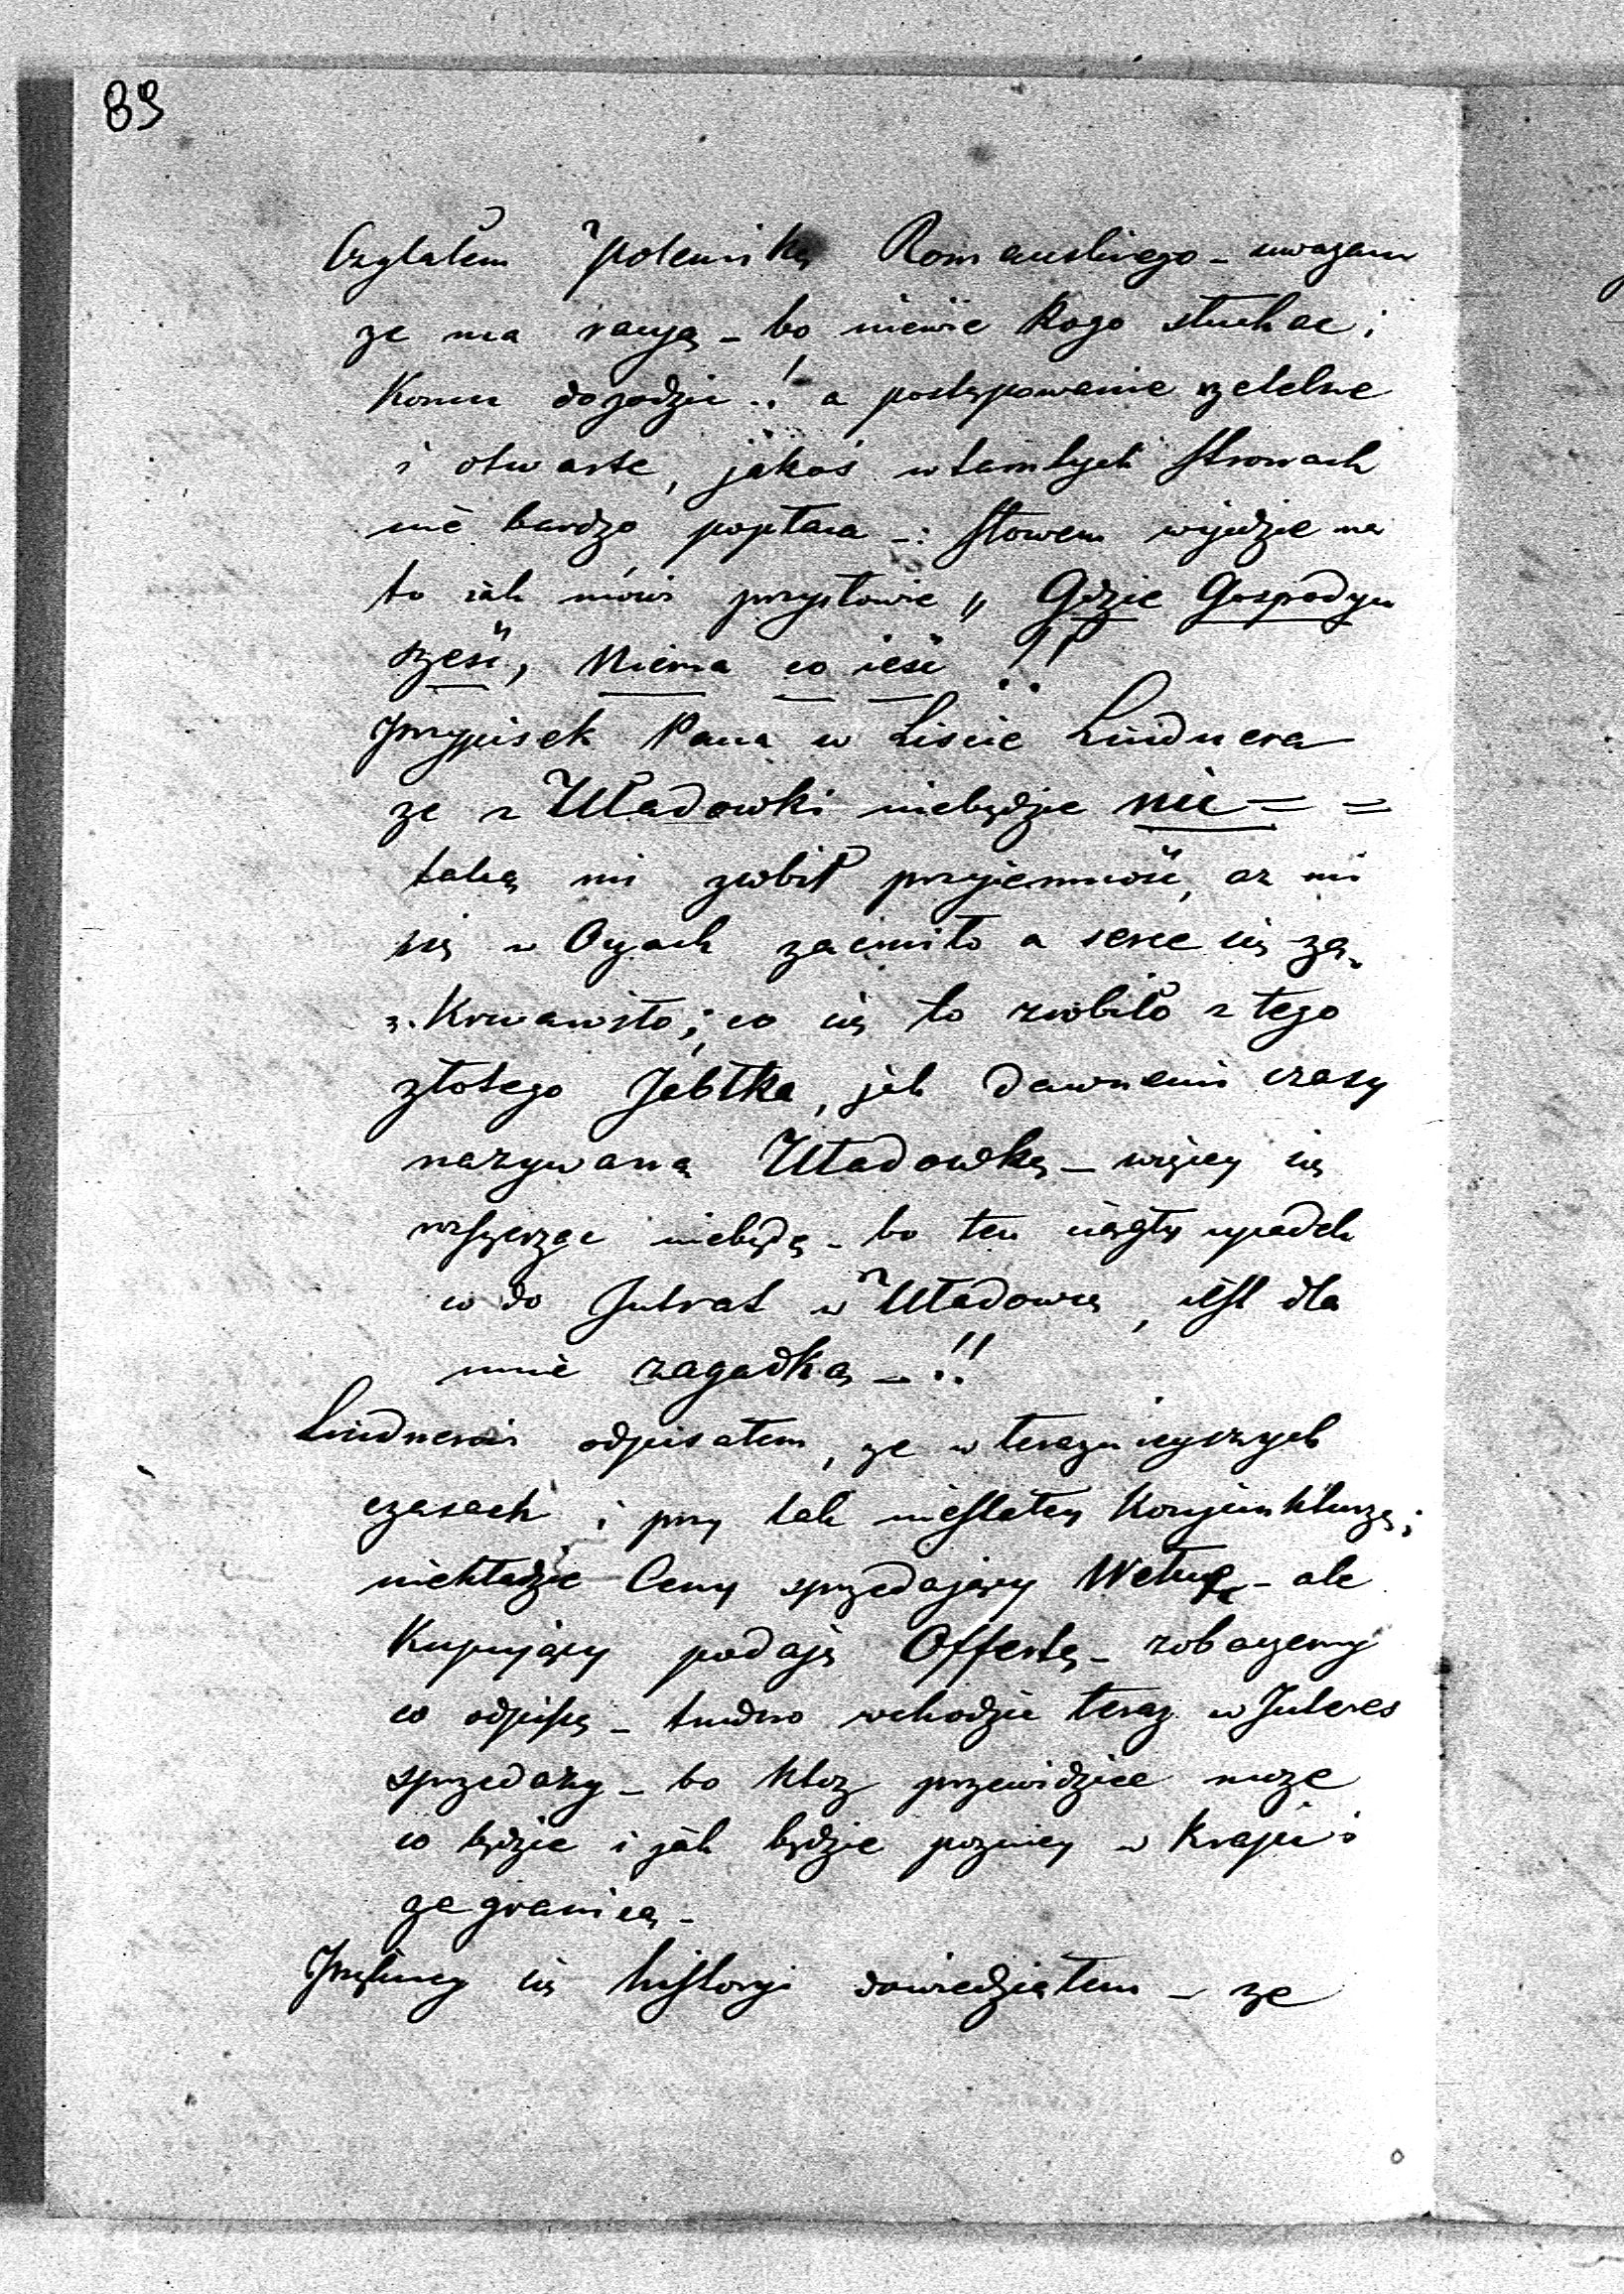 89
Czytałem Polemikę Romanskiego - uwazam
ze ma racyą - bo niewie Kogo słuchac i
Komu dogodzic.! a postępowanie rzetelne
i otwarte, jakoś w tamtych stronach
nie bardzo popłaca -: słowem wyjdzie na
to iak mówi przysłowie „ Gdzie Gospodyń
sześć, Niema co ieść !!
Przypisek Pana w Liście Lindnera
ze z Uładowki niebędzie nic = =
taką mi zrobił przyjemność, az mi
się w Oczach zacmiło a serce się za„
„Krwawiło; co się to zrobiło z tego
złotego Jabłka, jak dawnemi czasy
nazywaną Uładowkę - więcey się
niebędę - bo ten nagły upadek
co do Intrat w Uładowce, iest dla
mnie zagadką - !!
Lindnerowi odpisałem, ze w teraznieyszych
czasach i przy tak niestałey Konjunkturze;
niekładzie Ceny sprzedający Wełnę - ale
Kupujący podaję Offertę - zobaczemy
co odpiszą - trudno wchodzic teraz w Interes
sprzedaży - bo ktoz przewidziec moze
co będzie i jak będzie pozniey w Kraju i
za granicą -
się historyi dowiedziałem - ze